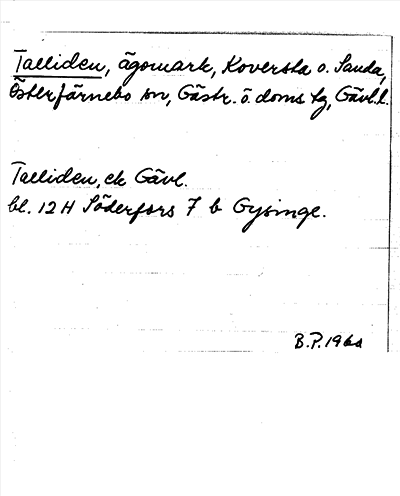 Talliden, ägomark, Koversta o. Sanda,
Österfärnebo sn, Gästr. ö. doms tg, Gävl.l.
Talliden, ek Gävl.
bl. 12 H Söderfors 7 b Gysinge.
B.P. 196